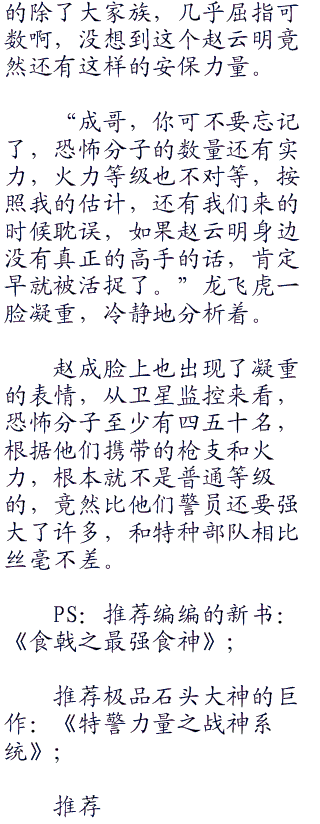 的除了大家族，几乎屈指可
数啊，没想到这个赵云明竟
然还有这样的安保力量。
“成哥，你可不要忘记
了，恐怖分子的数量还有实
力，火力等级也不对等，按
照我的估计，还有我们来的
时候耽误，如果赵云明身边
没有真正的高手的话，肯定
早就被活捉了。”龙飞虎一
脸凝重，冷静地分析着。
赵成脸上也出现了凝重
的表情，从卫星监控来看，
恐怖分子至少有四五十名，
根据他们携带的枪支和火
力，根本就不是普通等级
的，竟然比他们警员还要强
大了许多，和特种部队相比
丝毫不差。
PS：推荐编编的新书：
《食戟之最强食神》；
推荐极品石头大神的巨
作：《特警力量之战神系
统》；
推荐